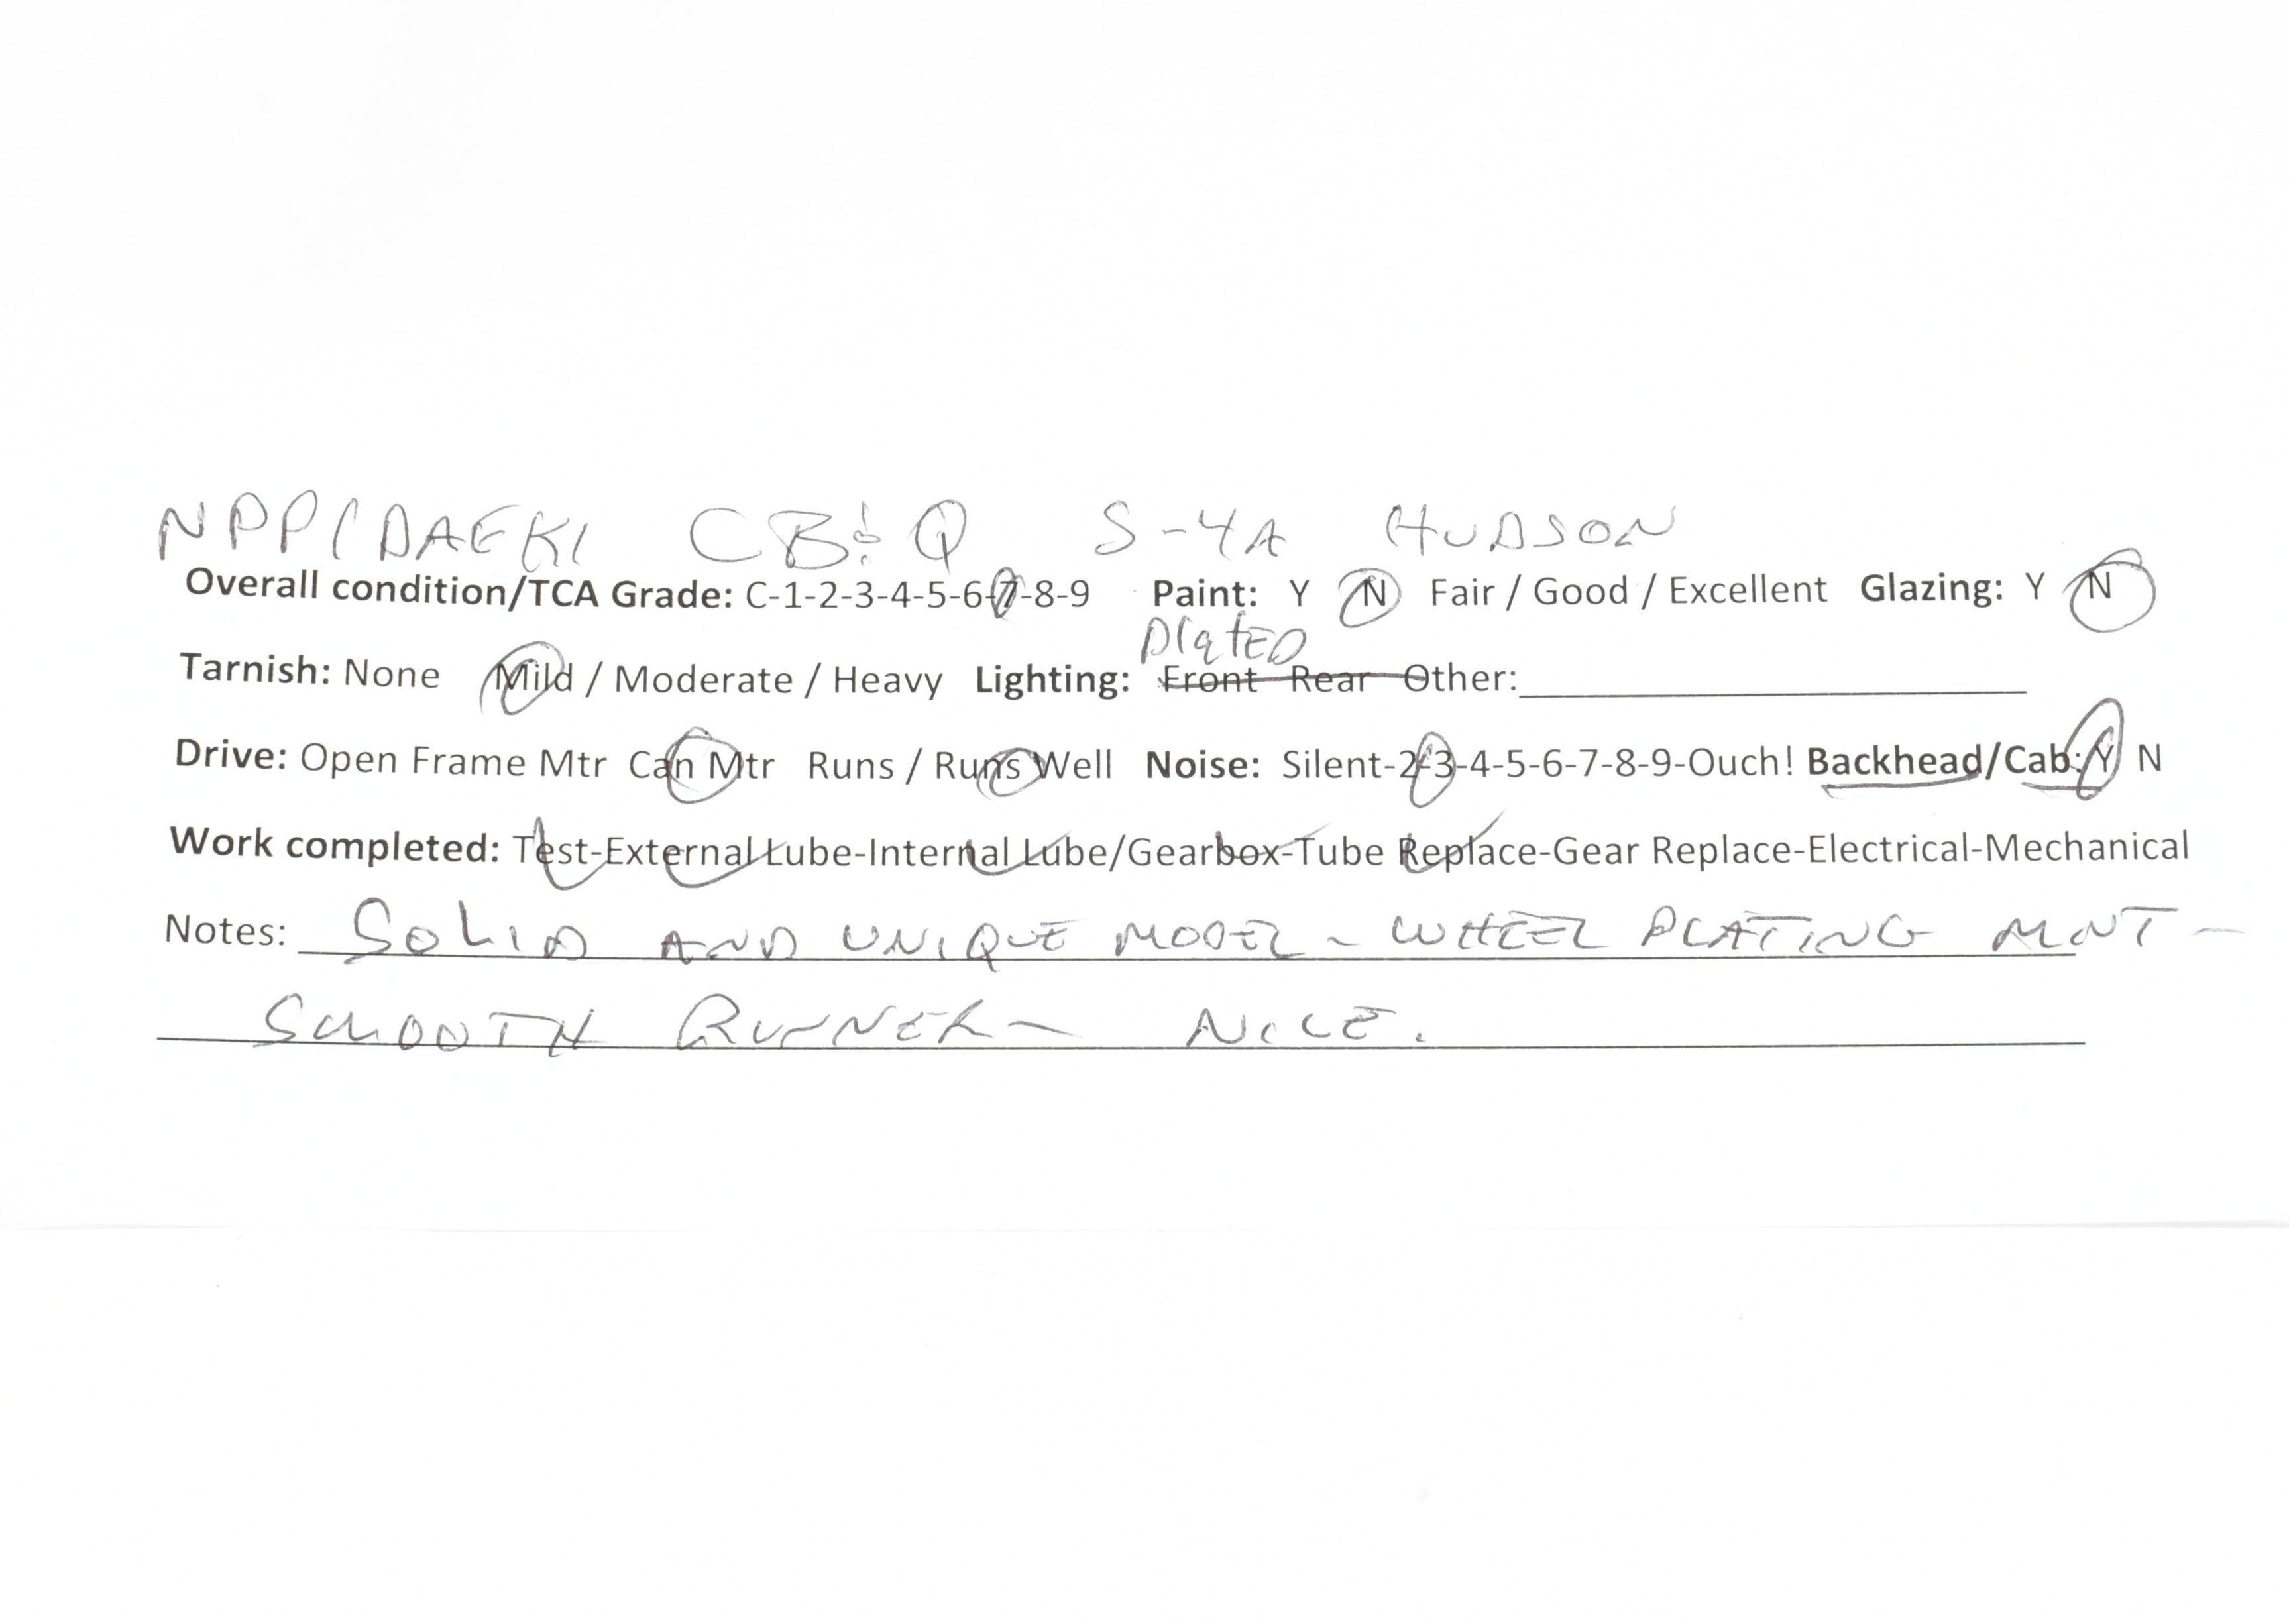 NPP/DAEKI CB&Q S-4A HUDSON
Overall condition/TCA Grade: C-1-2-3-4-5-6-7-8-9 Paint: Y N Fair / Good / Excellent Glazing: Y N
Plated
Tarnish: None Mild / Moderate / Heavy Lighting: Front Rear Other:
Drive: Open Frame Mtr Can Mtr Runs / Runs Well Noise: Silent-2-3-4-5-6-7-8-9-Ouch! Backhead/Cab: Y N
Work completed: Test-External Lube-Internal Lube/Gearbox-Tube Replace-Gear Replace-Electrical-Mechanical
Notes: SOLID AND UNIQUE MODEL - WHEEL PLATING MNT -
SMOOTH RUNNER - NICE.